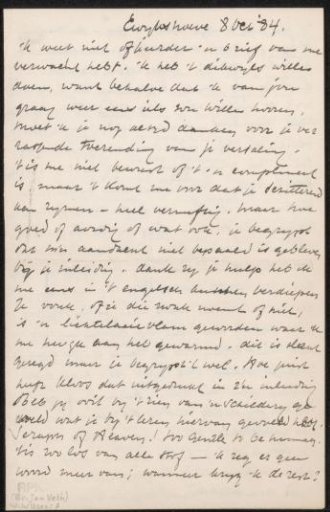 Ewijkshoeve 8 Oct '84.
'k weet niet of eerder 'n brief van me
verwacht hebt. 'k heb 't dikwijls willen
doen, want behalve dat 'k van jou
graag weer eens iets zou willen hooren,
moet 'k je nog altijd danken voor je ver
rassende toezending van je vertaling.
't is me niet bewust of 't 'n compliment
is, maar 't komt me voor dat je
kan rijmen - heel vernuftig. maar hoe
goed of aardig of wat ook, je begrijpt
dat m'n aandacht niet bepaald is gebleven
bij je inleiding. dank zij je hulp heb ik
me eens in 't engelsch kunnen verdiepen
Je vonk, of je die zwak noemt of niet,
is 'n lichtelaaie vlam geworden waar ik
me heug'k aan het gewarmd. dit is
gezegd maar je begrijpt 't wel. Hoe juist
heeft Kloos dat uitgedrukt in z'n inleiding
Heb jij ooit bij 't zien van 'n schilderij ge
voeld wat je bij 't lezen hiervan gevoeld hebt.
Seraph of Heaven! too gentle to be human,
't is zoo los van alle stof — 'k zeg er geen
woord meer van; wanneer krijg 'k de rest?
(Br. Jan Veth)